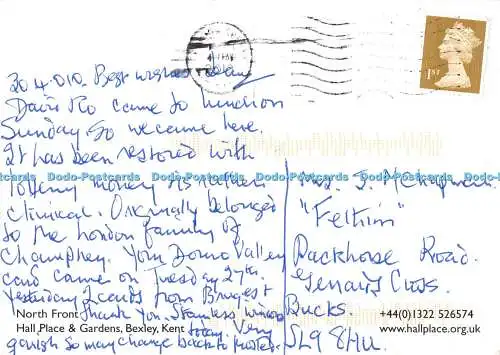 30.4.010. Best wishes
1ST
came to luncheon
Sunday so we came here.
It has been restored with
lottery money & is rather
clinical. Originally belonged
to the London family of
Champney. Your Donno Valley
card came on Tuesday 27th.
Yesterday 2 cards from
Thank You. Stainless
today. Very
garish so may change back to
Mrs. J.
"Felhim"
Packhorse Road.
Gerrards Cross.
Bucks.
SL9 8HU.
North Front
Hall Place & Gardens, Bexley, Kent
+44(0)1322 526574
www.hallplace.org.uk
Dodo-Postcards Dodo-Postcards Dodo-Postcards Dodo-Postcards Dodo-Postcards Dodo-Postcards